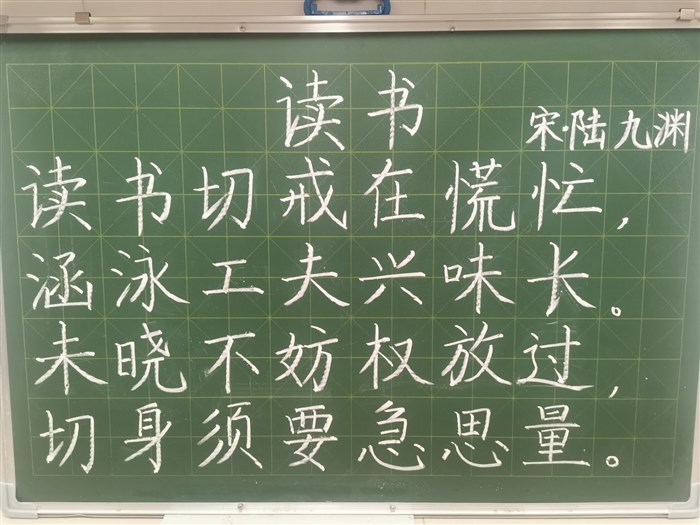 读书
宋·陆九渊
读书切戒在慌忙,
涵泳工夫兴味长。
未晓不妨权放过,
切身须要急思量。